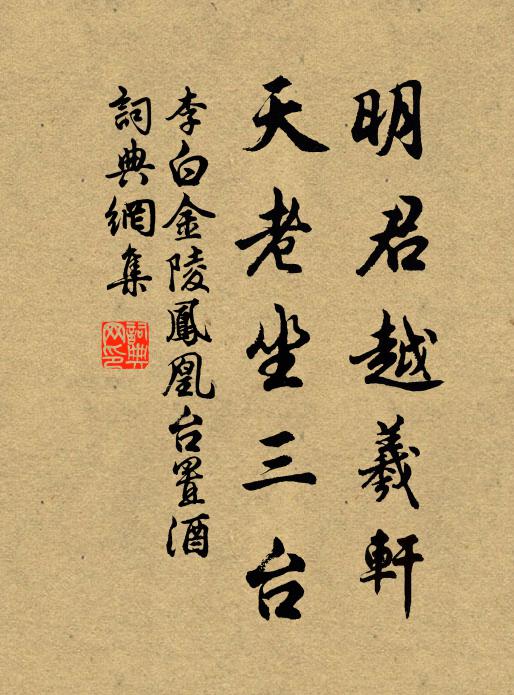 明君越羲軒
天老坐三台
李白金陵鳳凰台置酒
詞典網集
詞典网印